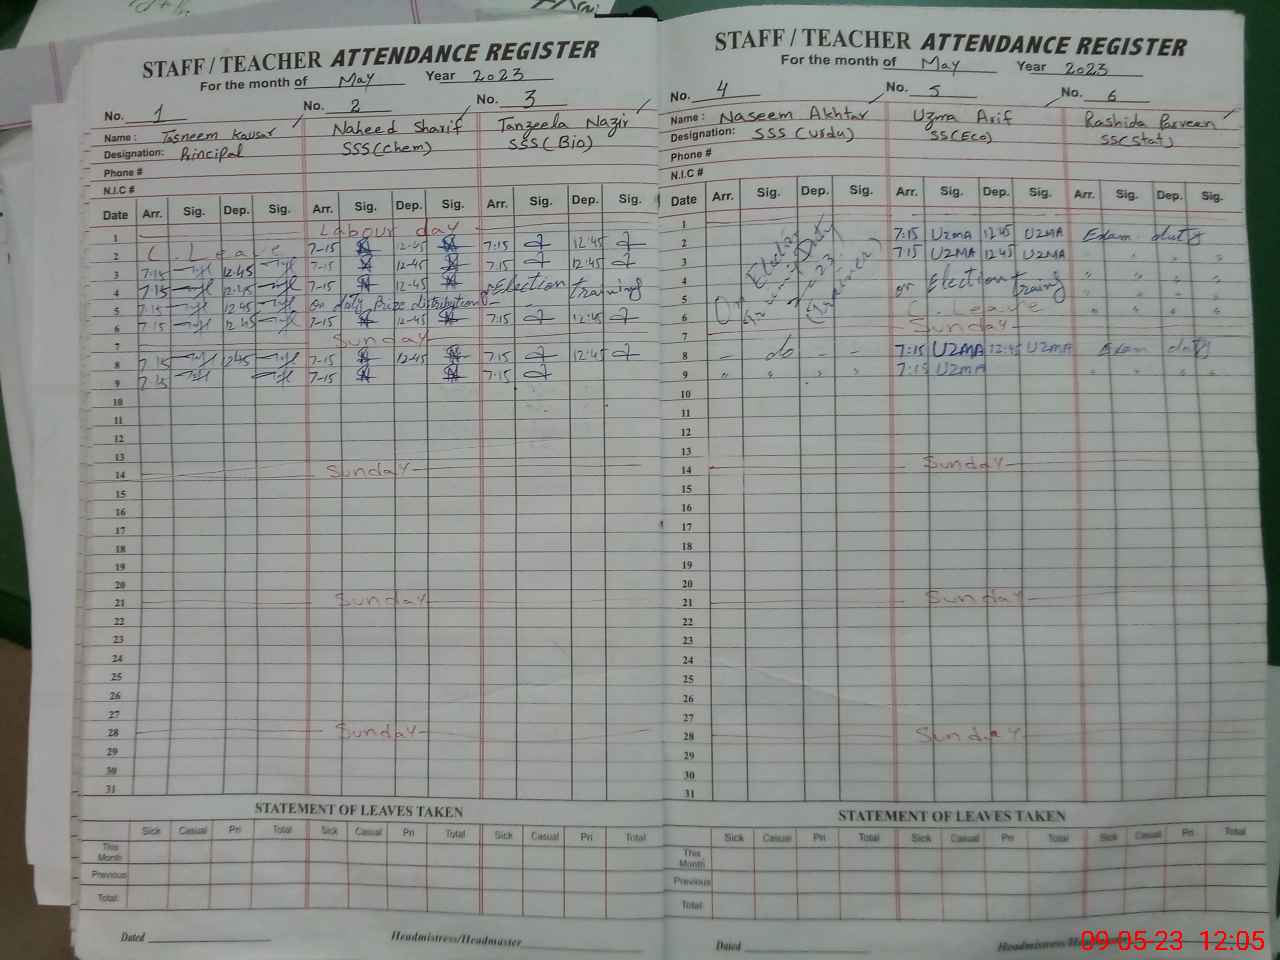 STAFF / TEACHER ATTENDANCE REGISTER
For the month of May Year 2023
No. 1 No. 2 No. 3
Name : Tasneem Kausar Naheed Sharif Tanzeela Nazir
Designation: Principal SSS(Chem) SSS(Bio)
Phone #
N.I.C #
Date Arr. Sig. Dep. Sig. Arr. Sig. Dep. Sig. Arr. Sig. Dep. Sig.
1 Labour day
2 C. Leave 7-15 12-45 7:15 12:45
3 7:15 12:45 7-15 12-45 7:15 12:45
4 7:15 12:45 7-15 12-45 Election training
5 7:15 12:45 on duty Prize distribution
6 7:15 12:45 7-15 12-45 7:15 12:45
7 Sunday
8 7:15 12:45 7-15 12-45 7:15 12:45
9 7:15 7-15 7:15
10
11
12
13
14 Sunday
15
16
17
18
19
20
21 Sunday
22
23
24
25
26
27
28 Sunday
29
30
31
STATEMENT OF LEAVES TAKEN
Sick Casual Pri Total Sick Casual Pri Total Sick Casual Pri Total
This Month
Previous
Total:
Dated Headmistress/Headmaster
STAFF / TEACHER ATTENDANCE REGISTER
For the month of May Year 2023
No. 4 No. 5 No. 6
Name : Naseem Akhtar Uzma Arif Rashida Parveen
Designation: SSS (Urdu) SS(Eco) SS(Stat)
Phone #
N.I.C #
Date Arr. Sig. Dep. Sig. Arr. Sig. Dep. Sig. Arr. Sig. Dep. Sig.
1
2 On Election Duty 7:15 UZMA 12:45 UZMA Exam duty
3 7:15 UZMA 12:45 UZMA " " "
4 on Election Traing " " "
5 " " "
6 C. Leave " " "
7 Sunday
8 - do - - 7:15 UZMA 12:45 UZMA Exam duty
9 " " " " 7:15 UZMA " " "
10
11
12
13
14 Sunday
15
16
17
18
19
20
21 Sunday
22
23
24
25
26
27
28 Sunday
29
30
31
STATEMENT OF LEAVES TAKEN
Sick Casual Pri Total Sick Casual Pri Total Sick Casual Pri Total
This Month
Previous
Total:
Dated Headmistress/
09-05-23 12:05